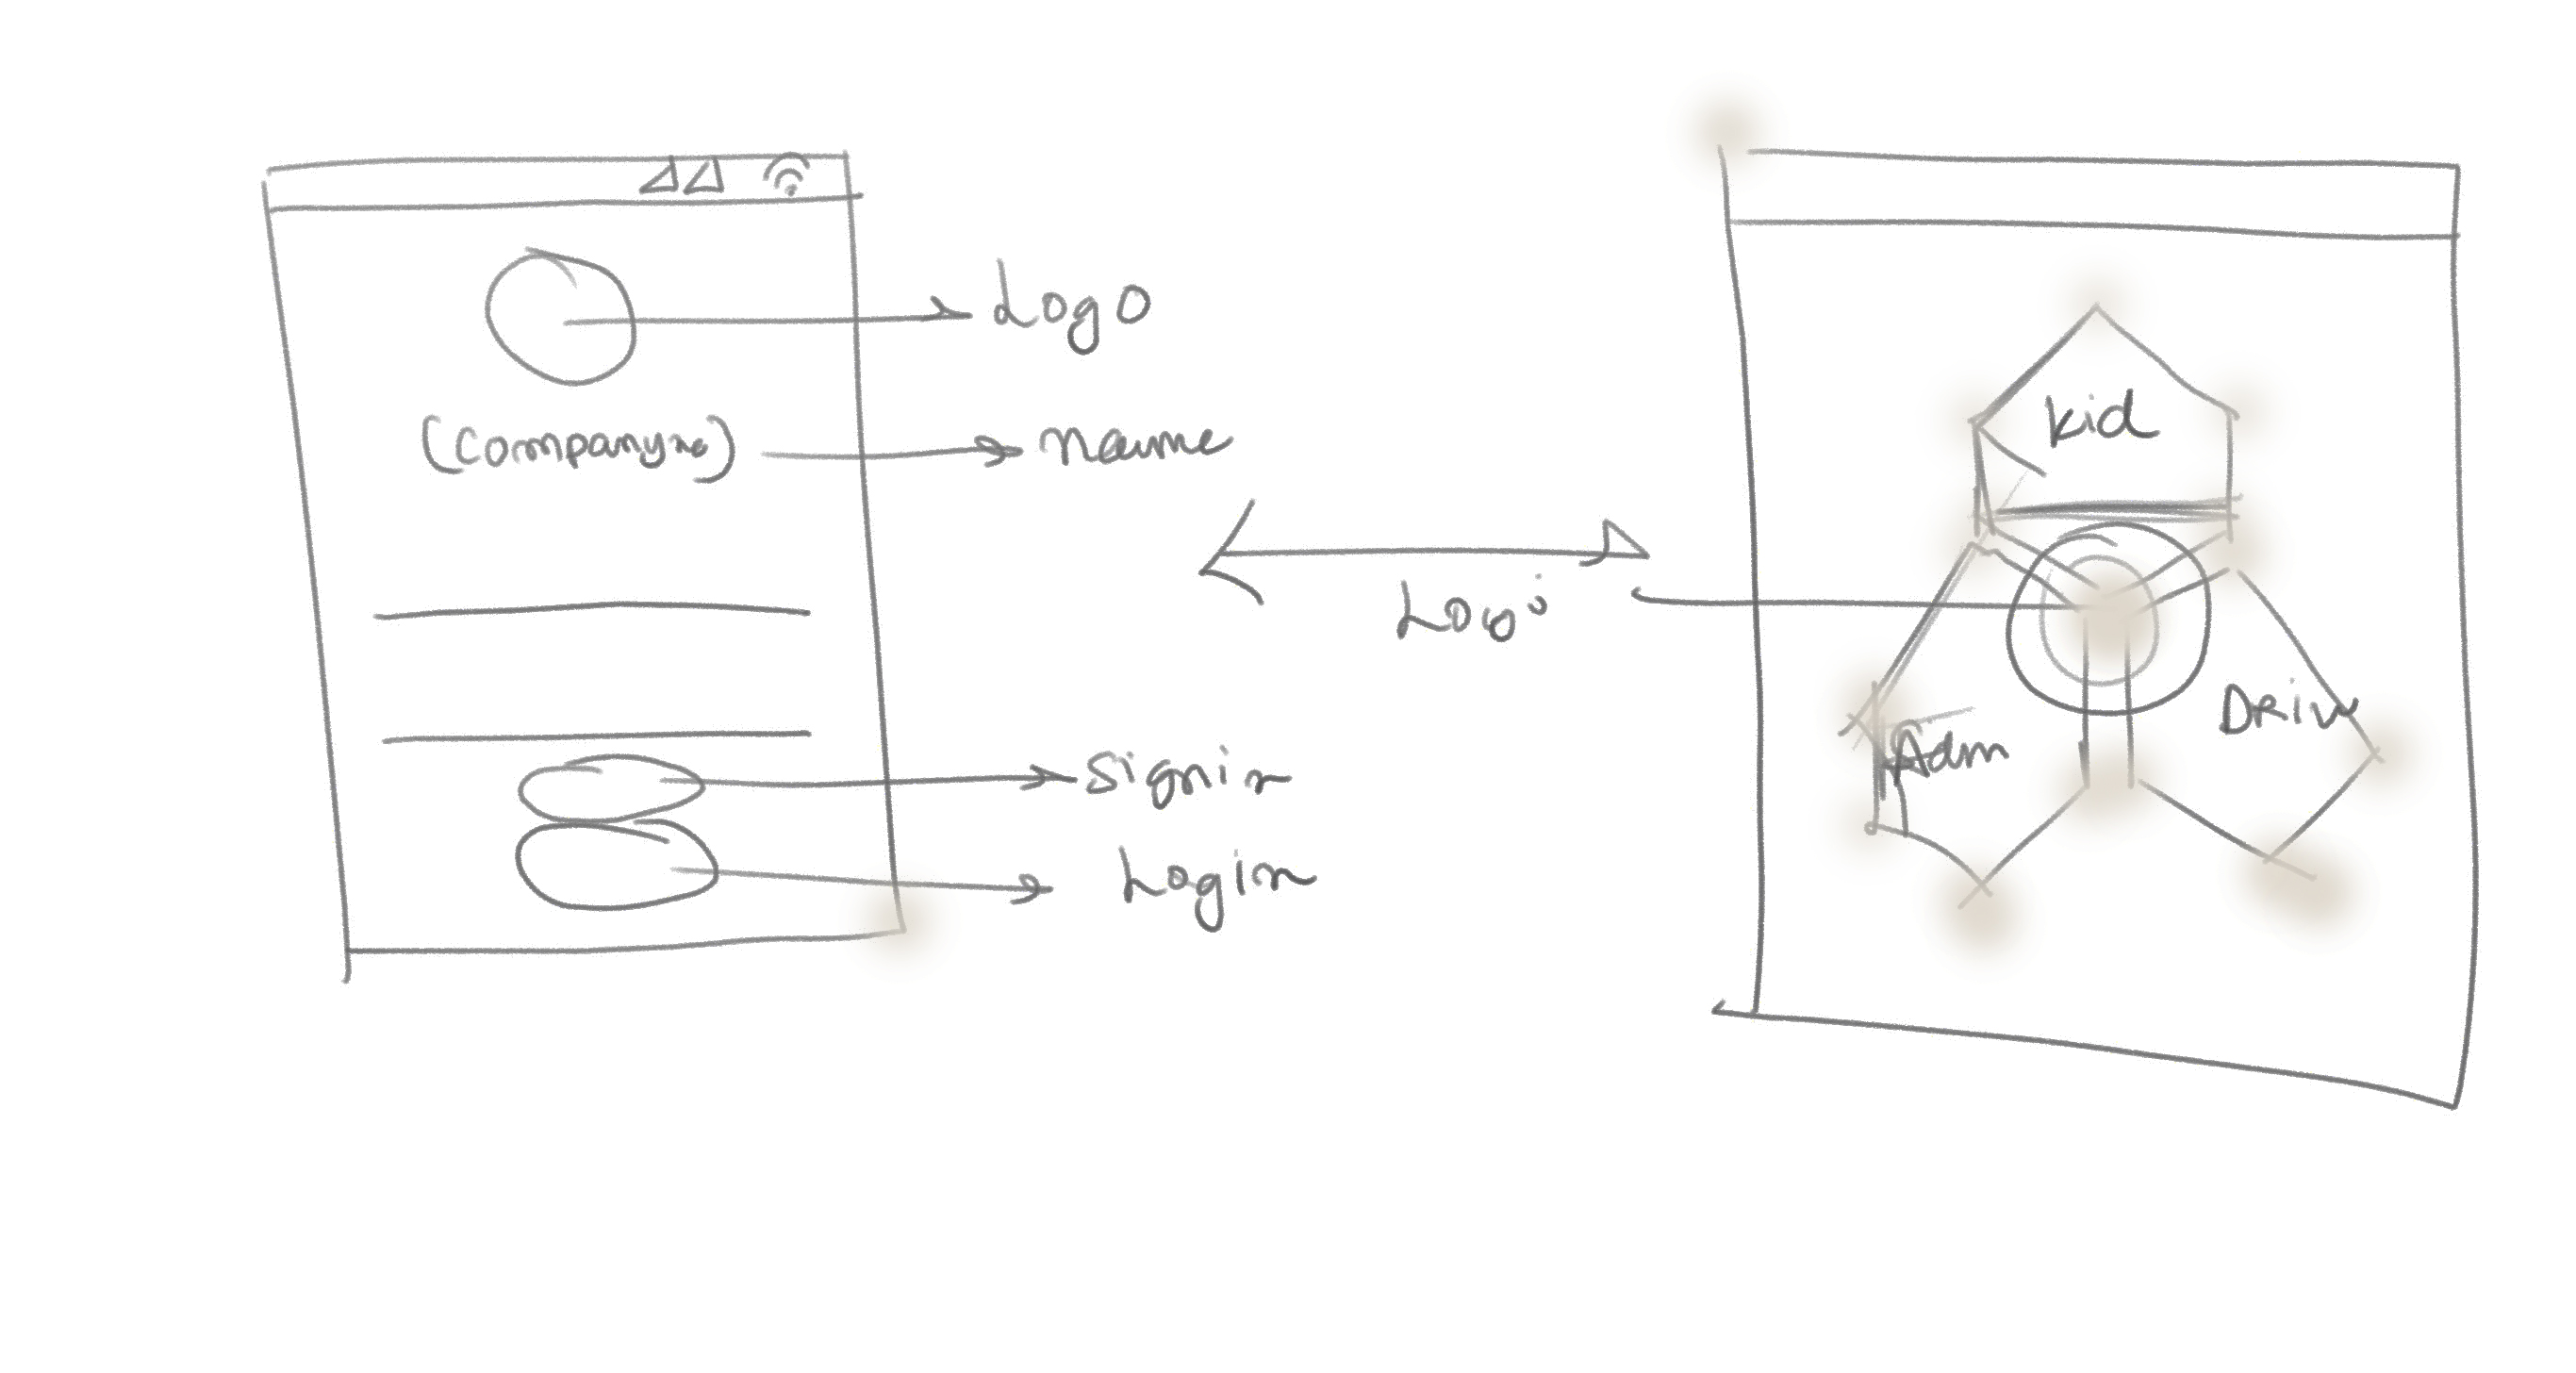 Logo
(Company
name
Signin
Login
Logo
kid
Adm
Driv